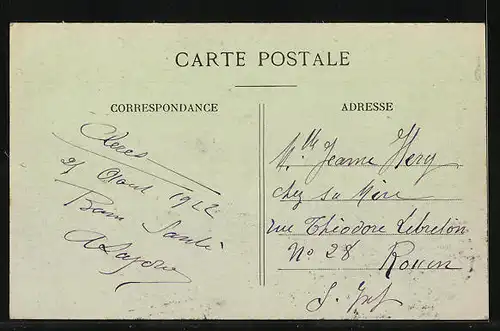 CARTE POSTALE
CORRESPONDANCE
ADRESSE
Clères
21 Aout 1922
Bonne Santé
Mlle Jeanne Hery
chez sa Mère
rue Théodore Lebreton
No 28
Rouen
S. Inf